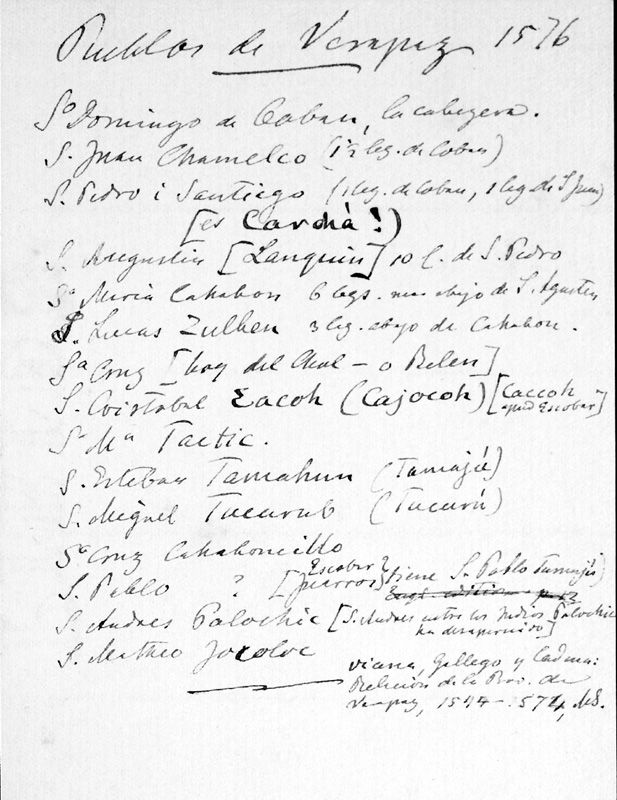 Pueblos de Verapaz 1576
Sto Domingo de Coban, la cabezera.
S. Juan Chamelco (1½ leg. de Coban)
S. Pedro i Santiago (1 leg. de Coban, 1 leg de S Juan)
[es Carchá!)
S. Augustin [Lanquin] 10 l. de S. Pedro
Sa Maria Cahabon 6 legs. mas abajo de S. Agustin
S. Lucas Zulben 3 leg. abajo de Cahabon.
Sa Cruz [hoy del Chol - o Belen]
S. Cristobal Cacoh (Cajocoh) [Caccoh
apud Escobar]
Sta Ma Tactic.
S. Esteban Tamahun (Tamajú)
S. Miguel Tucurub (Tucurú)
Sta Cruz Cahaboncillo
Escobar?
S. Pablo ? [Juarros] tiene S. Pablo Tamajú)
S. Andres Polochic [S. Andres entre los Indios Polochic
ha desaparecido]
S. Matheo Jocoloc
Viana, Gallego y Cadena:
Relacion de la Prov. de
Verapaz, 1544-1574, MS.